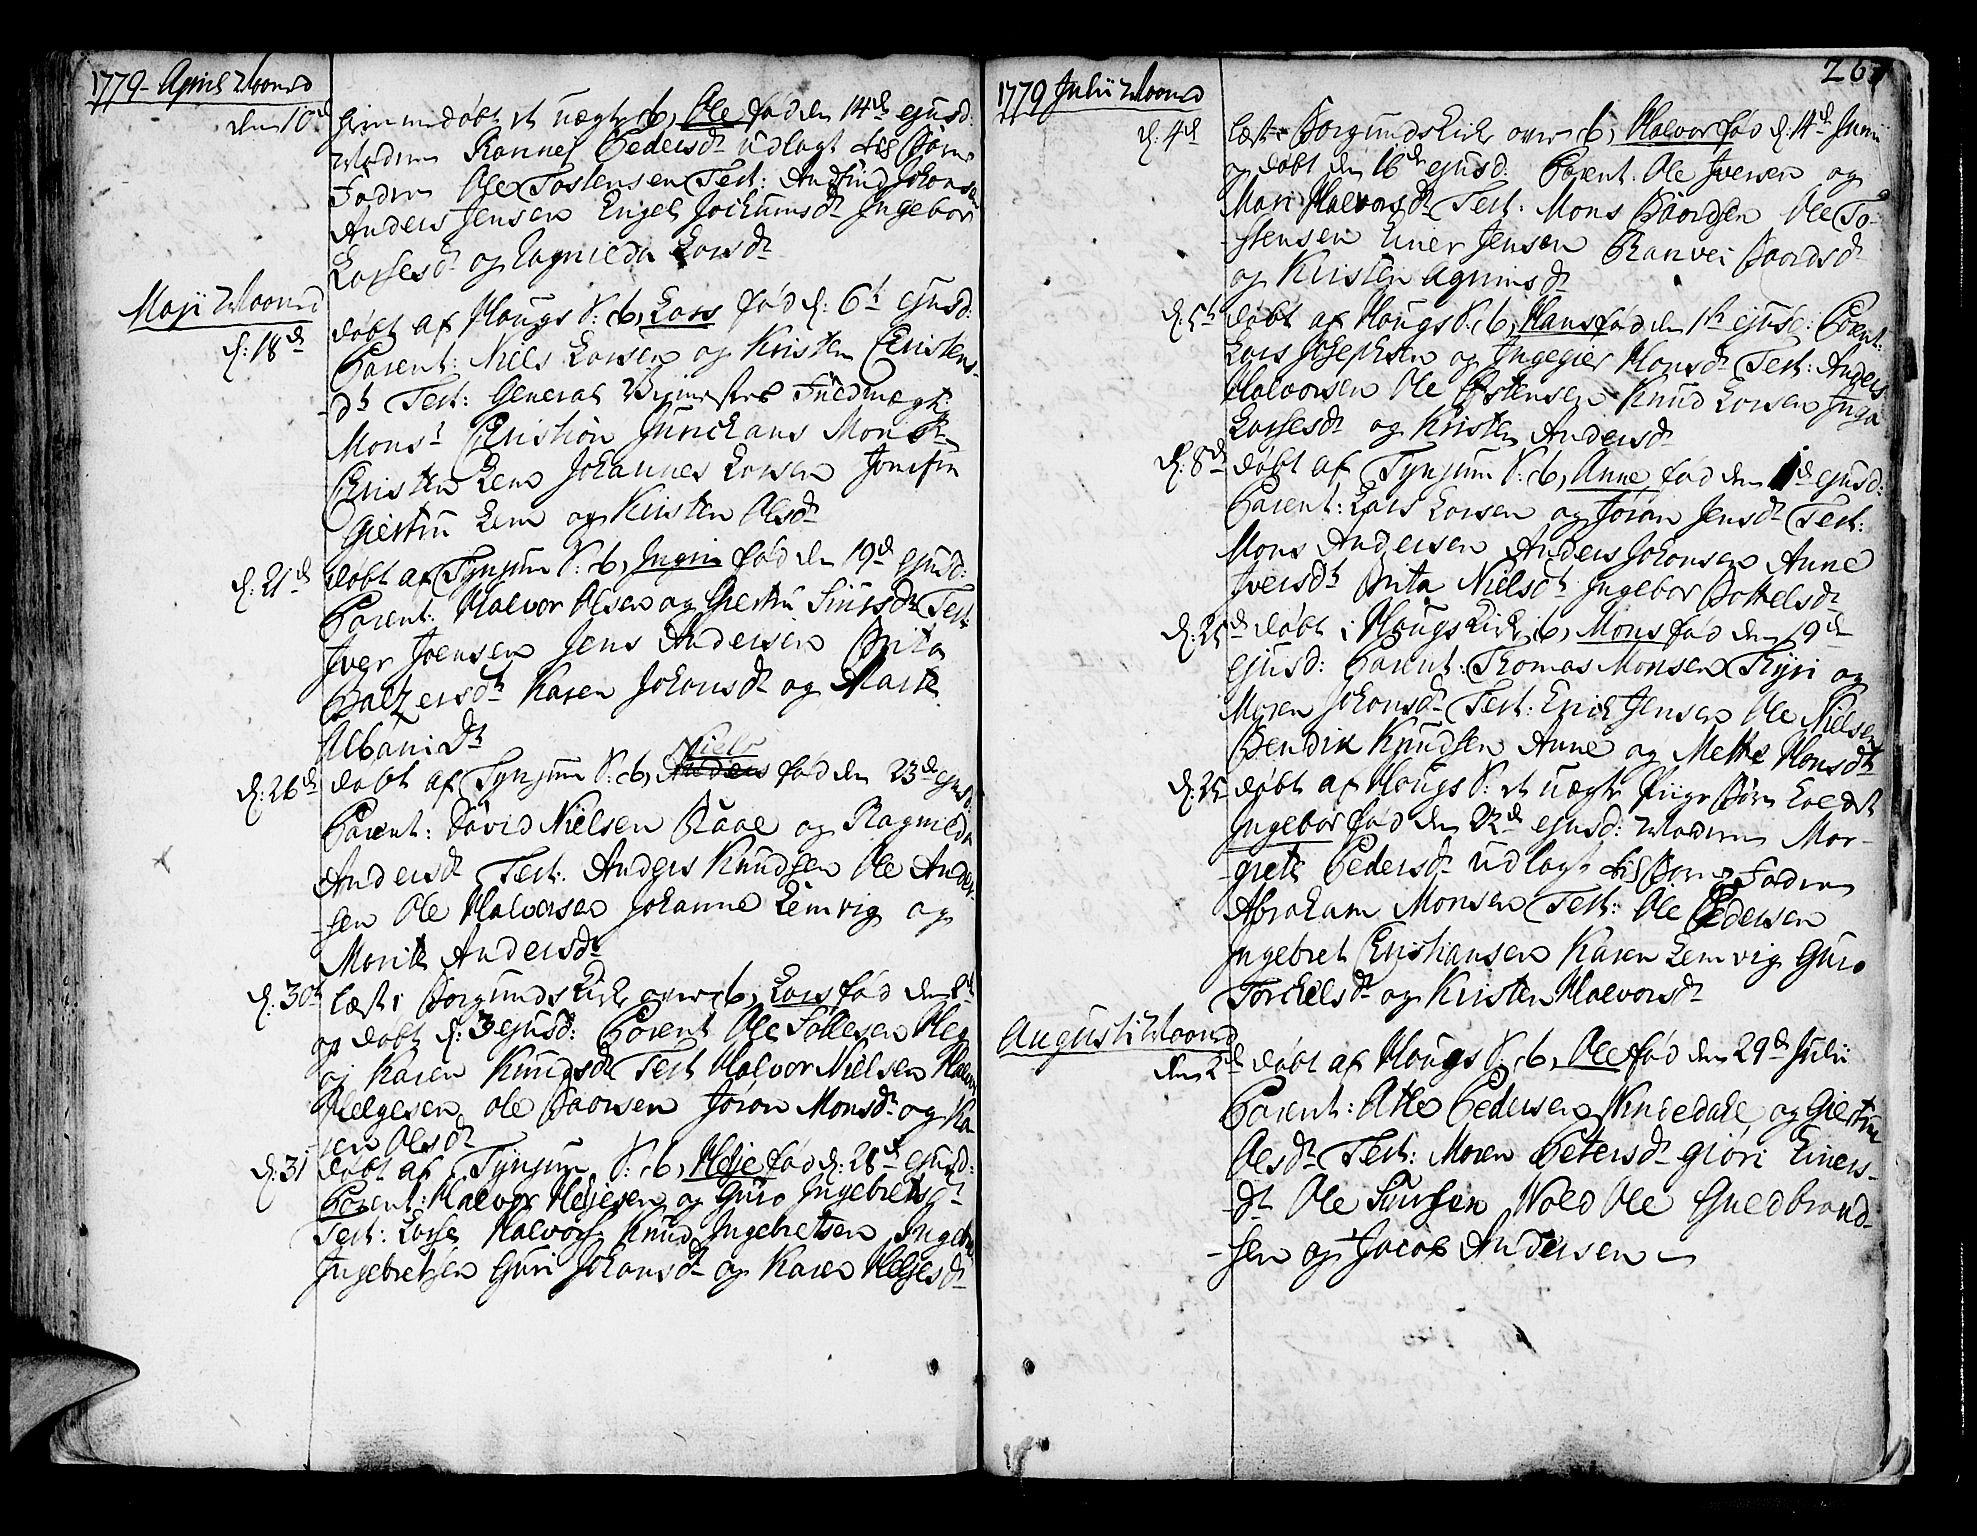 1779 April Maaned
den 10d hiemmedøbt et uægte b, Ole fød den 14de ejusd:
Modren Rannei Pedersdr udlagt til Barne
Fadren Ole Tostensen Test: Andfind Johansen
Anders Jensen Engel Jochumsdr Ingebor
Lassesdr og Ragnilda Larsdr
Maji Maaned
d: 18de døbt af Hougs S: b, Lars fød d: 6t ejusd:
Parent: Niels Larsen og Kristen Christens-
dtr Test: General Fuldmægt:
Monsr Christian Junchans Monsr
Christen Lem Johannes Larsen Jomfru
Giertru Lem og Kristen Olsdr
d: 21de døbt af Tynjum S: b, Ingri fød den 19de ejusd:
Parent: Halvor Olsen og Giertru Siursdr Test:
Iver Joensen Jens Andersen Brita
Baltzersdtr Karen Johansdr og Marte
Albani Dtr
d: 26de døbt af Tynjum S: b, Anders Niels fød den 23de ejusd:
Parent: David Nielsen Raae og Ragnilda
Andersdr Test: Anders Knudsen Ole Ander-
sen Ole Halvorsen Johanne Lemvig og
Marite Andersdr
d: 30t læst i Borgunds Kirke over b, Lars fød den 2d
og døbt d: 3 ejusd: Parent Ole Follesen Heg
og Karen Knudsdr Test Halvor Nielsen Halvor
Helgesen Ole Baarsen Joran Monsdr og Ka
ren Olsdr
d: 31 døbt af Tynjum S: b, Helje fød d: 28d ejusd:
Parent: Halvor Heljesen og Guro Ingebretsdr
Test: Lasse Halvors: Knud Ingebretsen Ingebr
Ingebretsen Guri Johansdr og Karen Heljesdr
267
1779 Julii Maaned
d: 4d læst i Borgunds Kirke over b, Halvor fød d: 14de Junii
og døbt den 16de ejusd: Parent: Ole Iversen og
Mari Halvorsdr Test: Mons Baardsen Ole To-
stensen Einer Jensen Ranvei Baardsdr
og Kristen
d: 5te døbt af Hougs S: b, Hans fød den 1te ejusd: Parent:
Lars Josephsen og Ingegier Hansdr Test: Anders
Halvorsen Ole Østensen Knud Larsen Inga
Lassesdr og Kristen Andersdr
d: 8de døbt af Tynjum S: b, Anne fød den 1de ejusd:
Parent: Lars Larsen og Joran Jensdr Test:
Mons Andersen Anders Johansen Anne
Iversdtr Brita Nielsdtr Ingebor Bottelsdr
d: 25de døbt i Hougs Kirke b, Mons fød den 19de
ejusd: Parent: Thomas Monsen Thyri og
Maren Johansdr Test: Erich Jensen Ole Nielsen
Bendix Knudsen Anne og Mette Hansdtr
d: 25 døbt af Hougs S: et uægte Piige Barn kaldet
Ingebor fød den 22de ejusd: Modren Mar-
grete Pedersdr udlagt til Barne Fadren
Abraham Monsen Test: Ole Pedersen
Ingebret Christiansen Karen Lemvig Guro
Torchelsdr og Kristen Halvorsdr
Augusti Maaned
den 2de døbt af Hougs S: b, Ole fød den 29de Julii
Parent: Atle Pedersen Kuledahl og Giertru
Olsdr Test: Maren Petersdr Giøri Einers-
dr Ole Siursen Vold Ole Guldbrand-
sen og Jacob Andersen